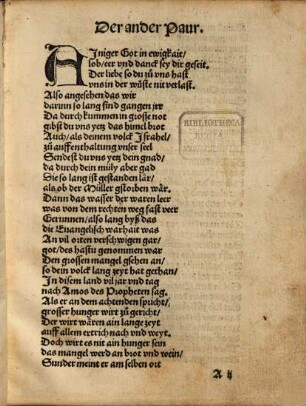 Der ander Paur.
AIniger Got in ewigkait/
lob/eer vnd danck sey dir geseit.
Der liebe so du zů vns hast
vns in der wüste nit verlast.
Also angesehen das wir
darinn so lang sind gangen jrr
Da durch kummen in grosse not
gibst du vns yetz das himel brot
Auch/als deinem volck Israhel/
zů auffenthaltung vnser seel
Sendest du vns yetz dein gnad/
da durch dein müly aber gad
Sie so lang ist gestanden lär/
als ob der Müller gstorben wär.
Dann das wasser der waren leer
was von dem rechten weg fast veer
Gerunnen/also lang byß das
die Euangelisch warhait was
An vil orten verschwigen gar/
got/des hastu genommen war
Den grossen mangel gsehen an/
so dein volck lang zeyt hat gethan/
In disem land vil jar vnd tag
nach Amos des Propheten sag.
Als er an dem achtenden spricht/
grosser hunger wirt zů gericht
Der wirt wären ain lange zeyt
auff allem ertrich nach vnd weyt.
Doch wirt es nit ain hunger sein
das mangel werd an brot vnd wein/
Sunder meint er am selben ort
A ij
BIBLIOTHECA